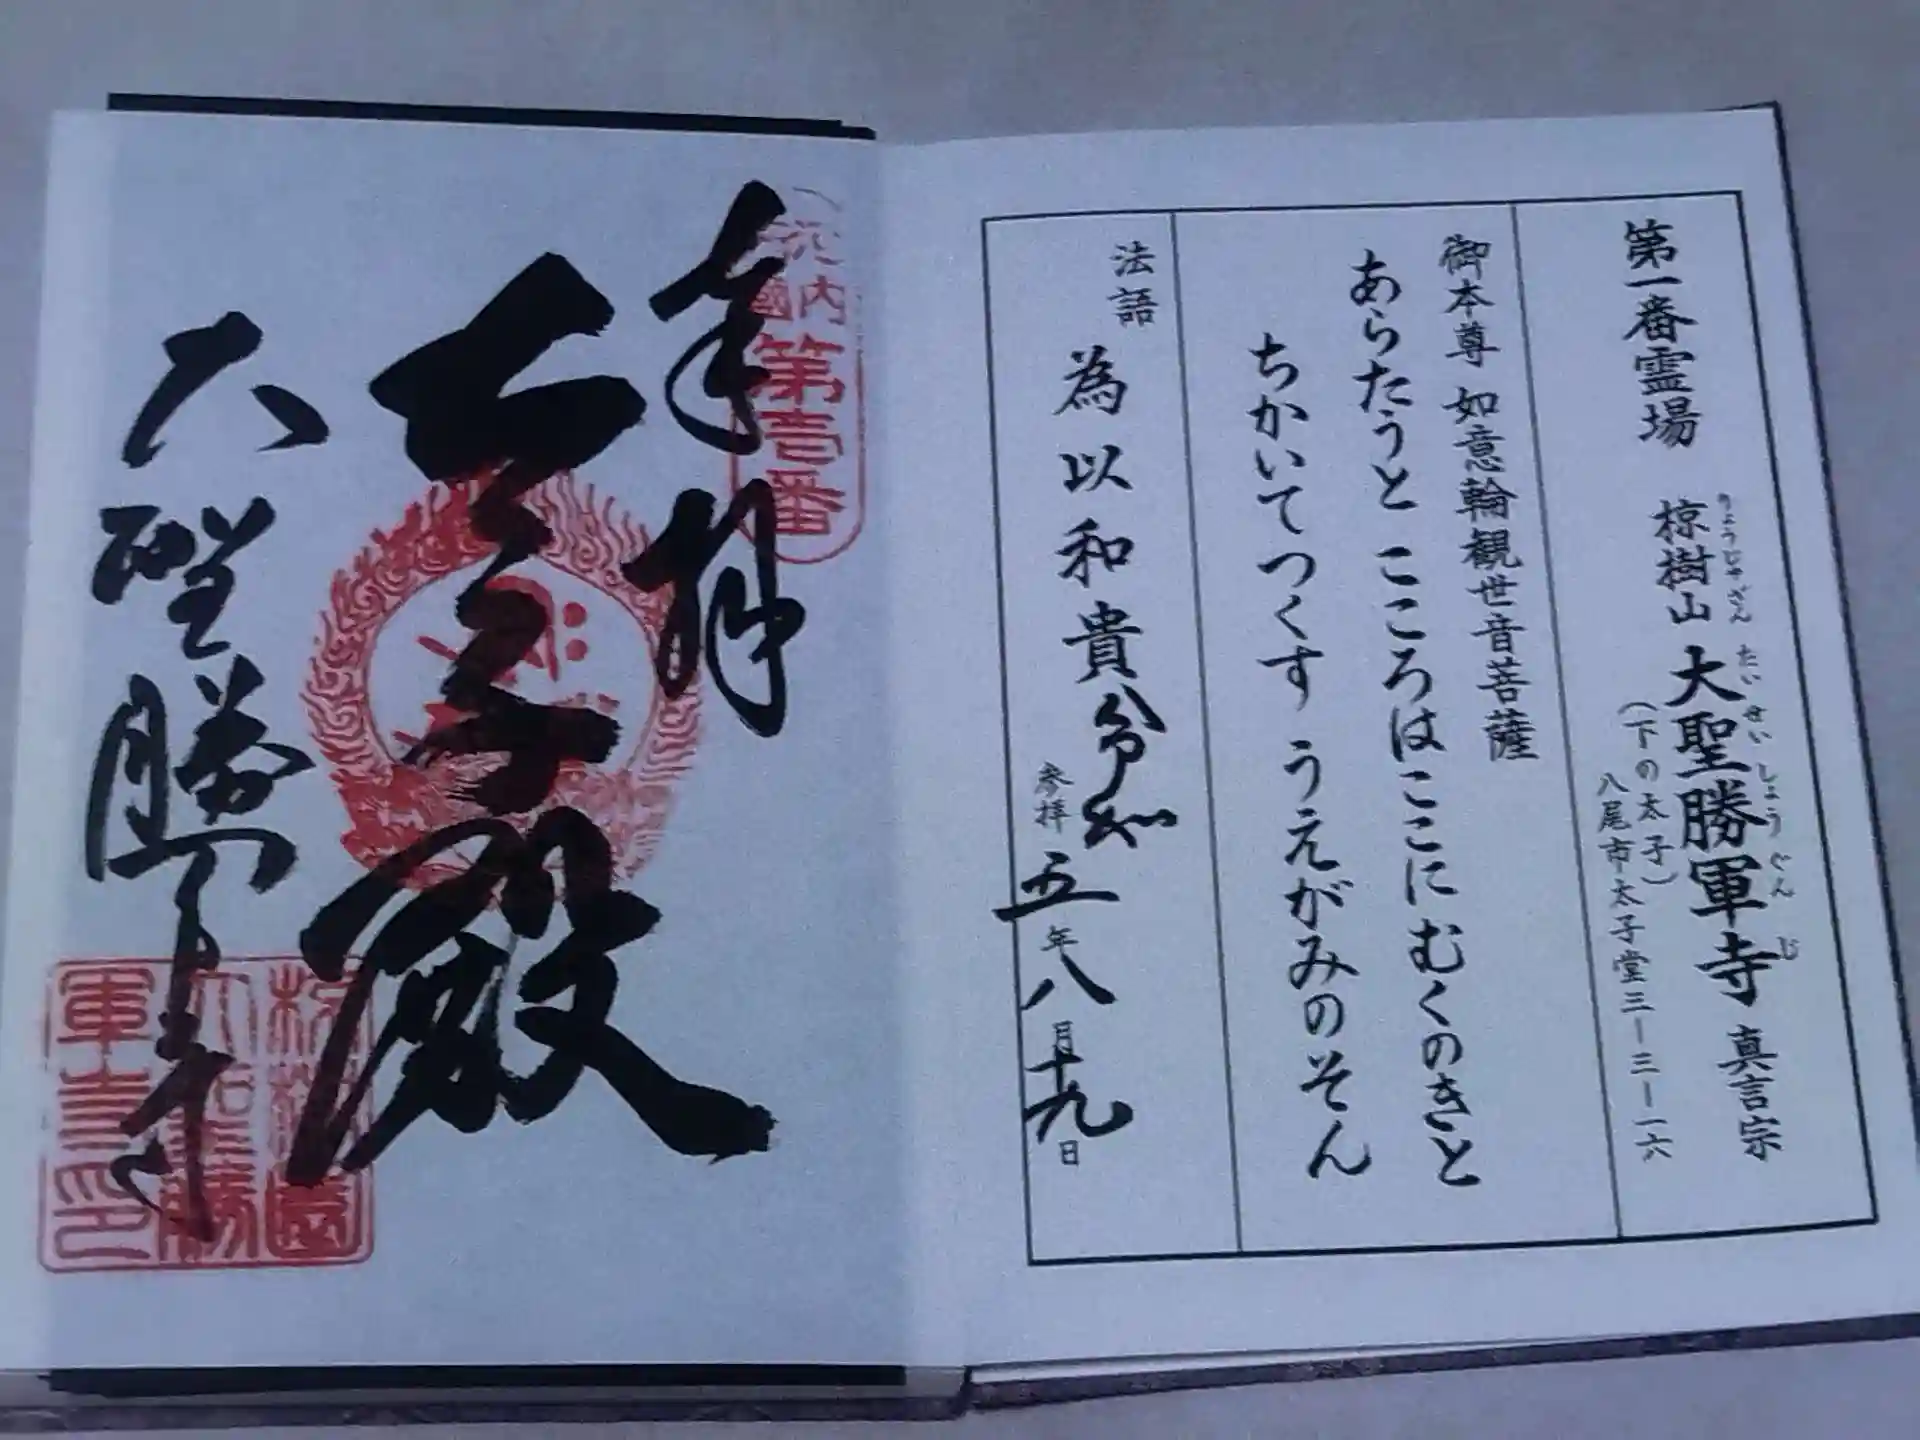 第一番霊場 椋樹山 大聖勝軍寺 真言宗
りょうじゅざん たいせいしょうぐんじ
(下の太子)
八尾市太子堂三ー三ー一六
御本尊 如意輪観世音菩薩
あらたうと こころはここにむくのきと
ちかいてつくす うえがみのそん
法語
為以和貴
参拝 令和五年八月十九日
河内國
第壱番
奉拝
太子殿
大聖勝軍寺